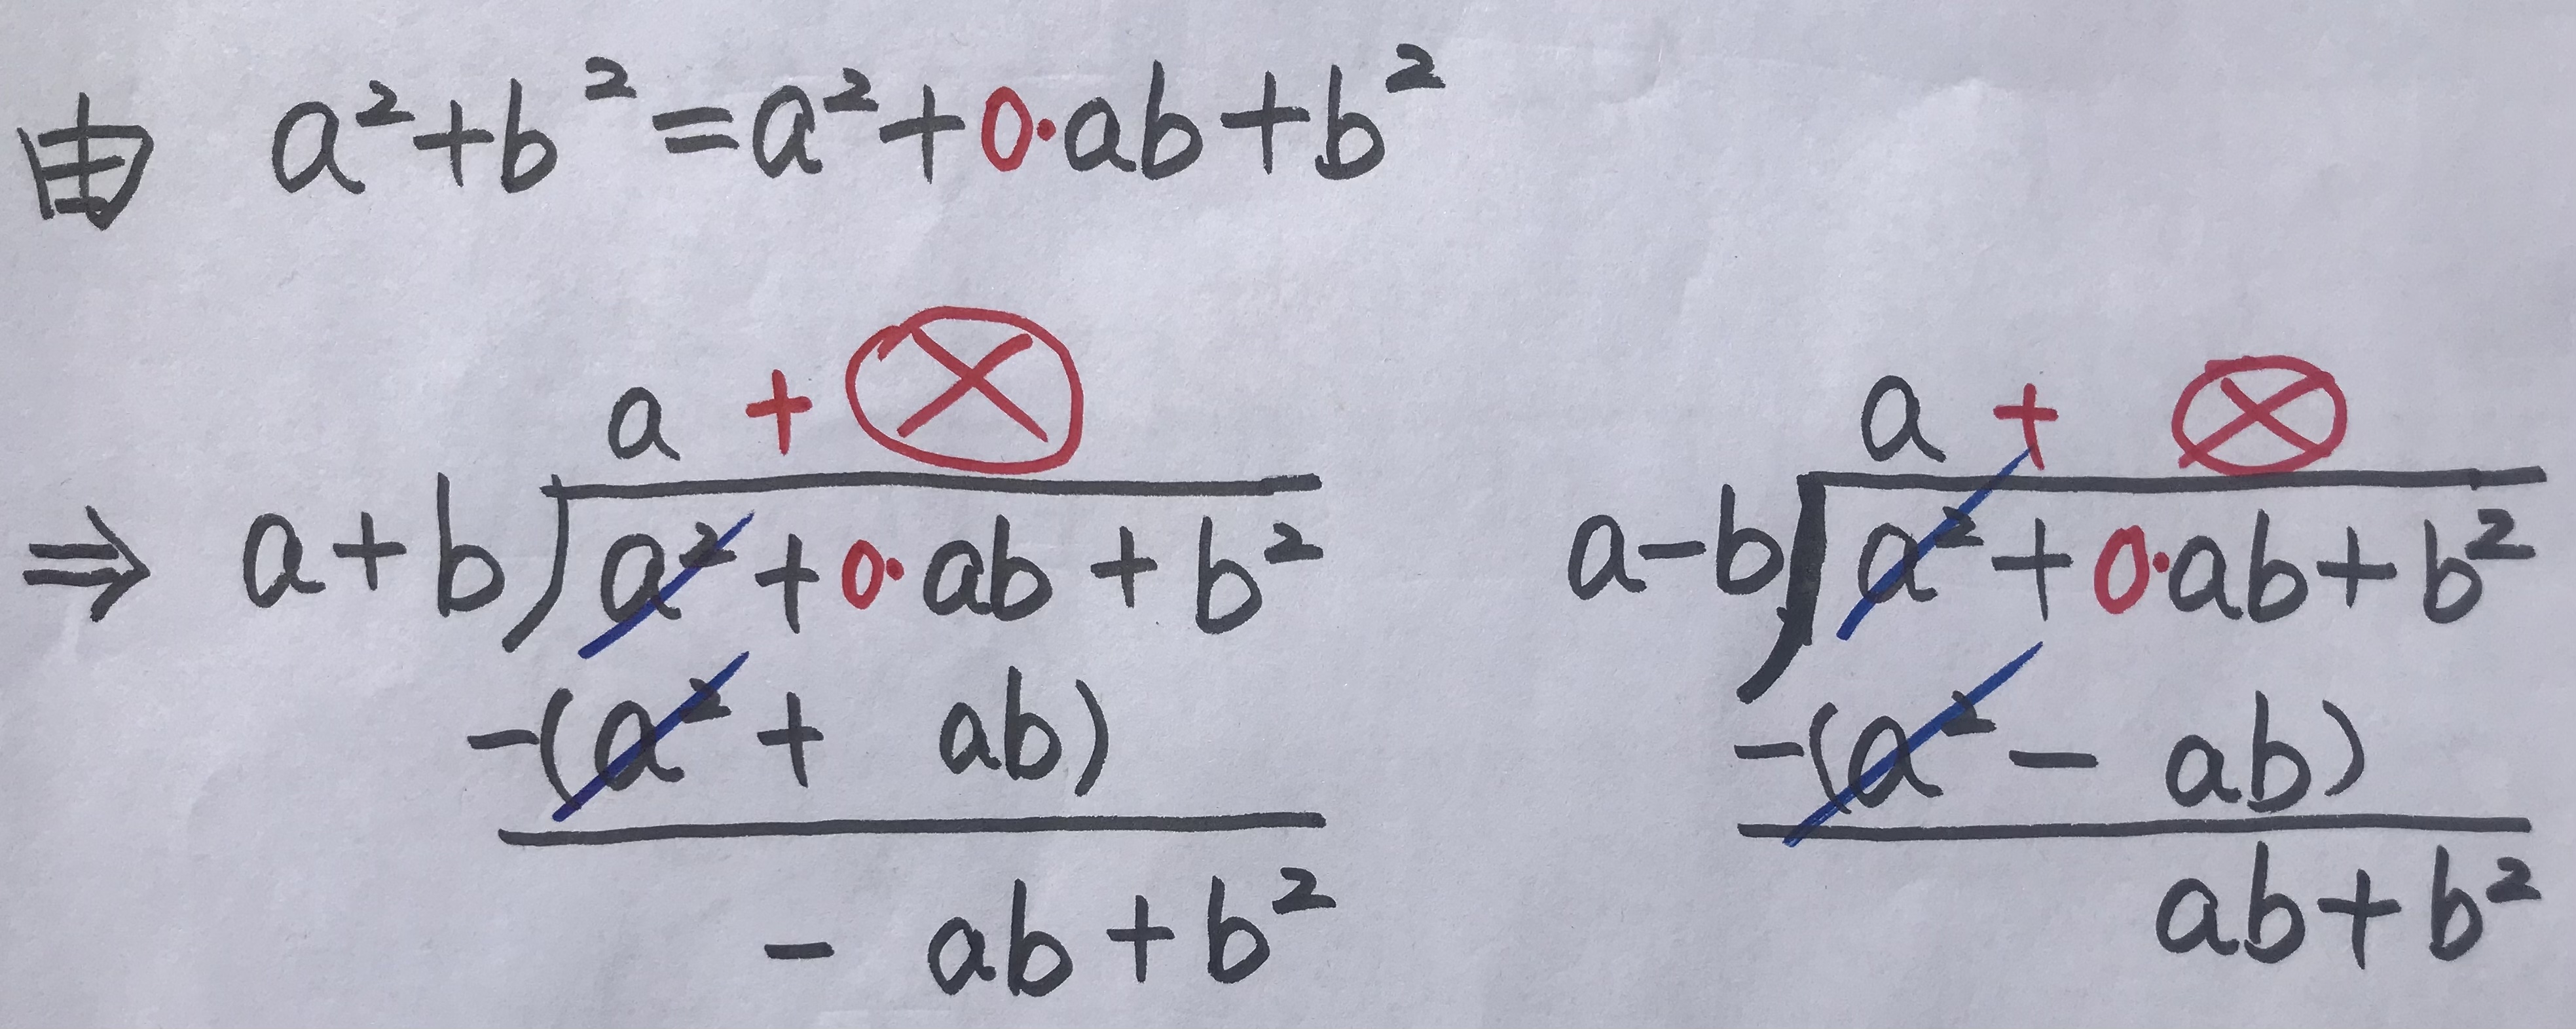 由 a²+b²=a²+0·ab+b²
a + ⊗
⇒ a+b)a²+0·ab+b²
-(a²+ ab)
- ab+b²
a + ⊗
a-b)a²+0·ab+b²
-(a²- ab)
ab+b²